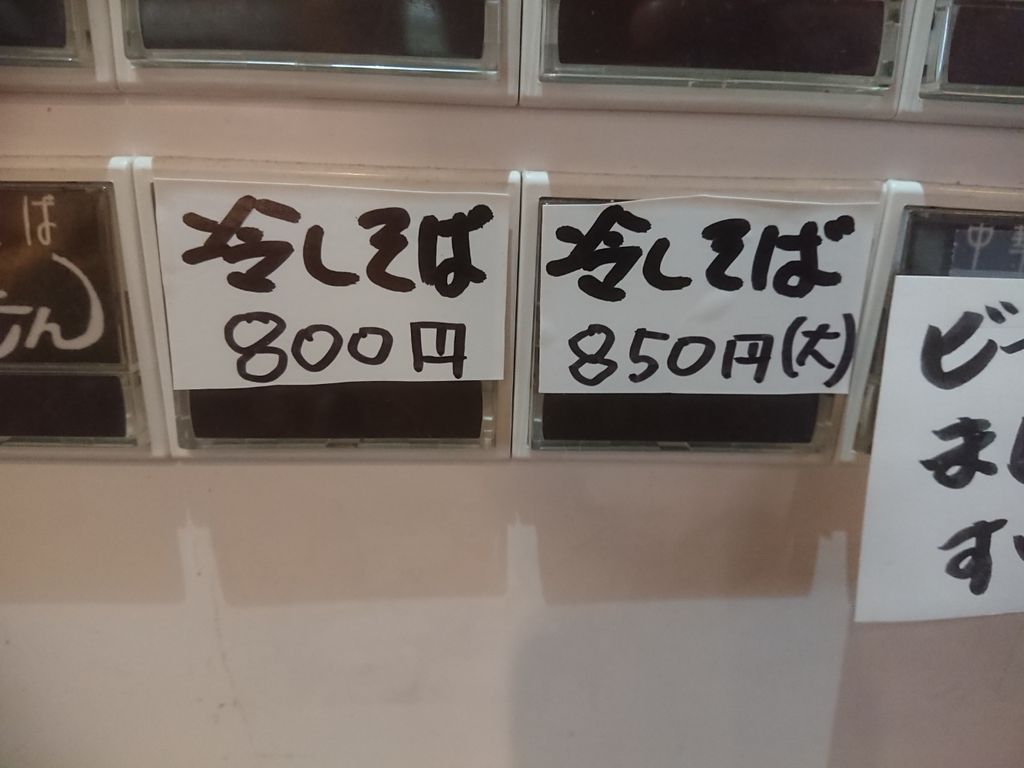 冷しそば
800円
冷しそば
850円(大)
中華
ば
ん
ビー
ま
す